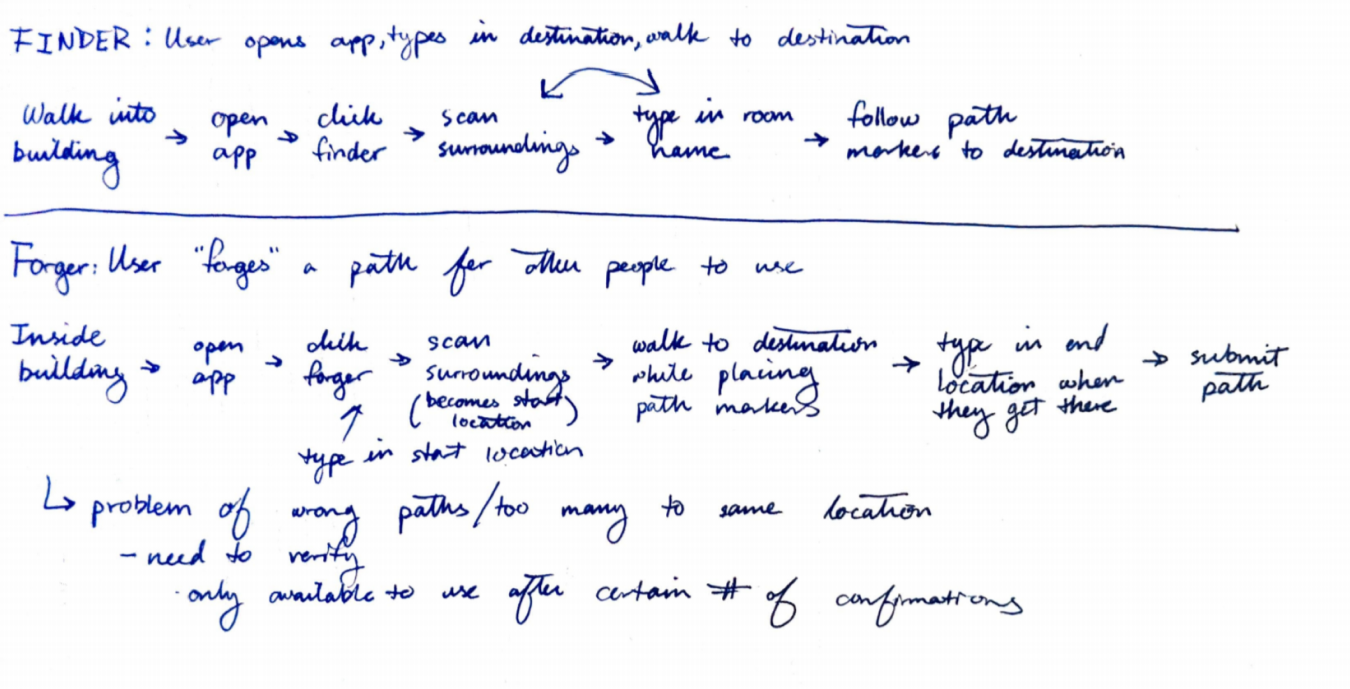 FINDER: User opens app, types in destination, walk to destination
Walk into building → open app → click finder → scan surroundings → type in room name → follow path markers to destination
Forger: User "forges" a path for other people to use
Inside building → open app → click forger → scan surroundings (becomes start location) → walk to destination while placing path markers → type in end location when they get there → submit path
type in start location
↳ problem of wrong paths/too many to same location
- need to verify
· only available to use after certain # of confirmations